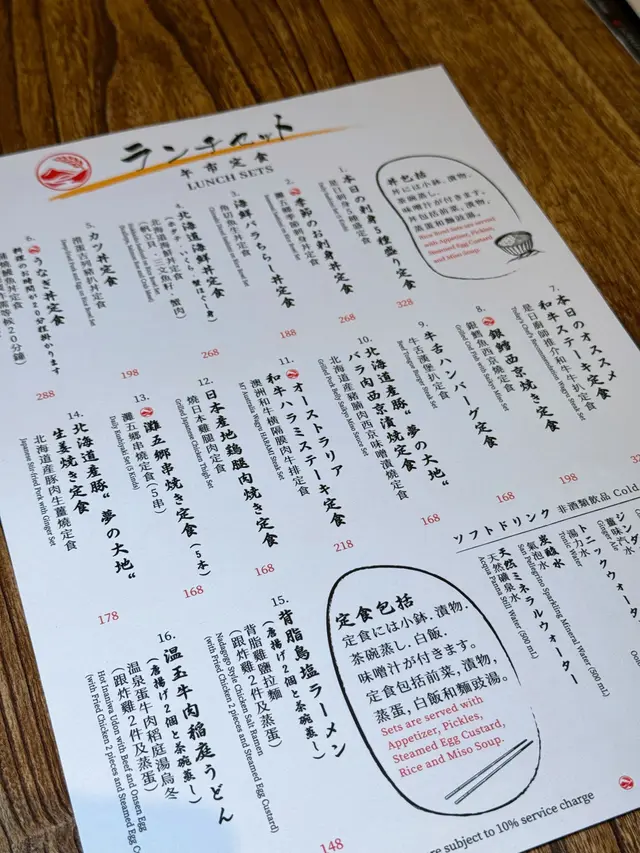 ランチセット
午市定食
LUNCH SETS
丼包括
丼には小鉢.漬物.
茶碗蒸し.
味噌汁が付きます。
丼包括前菜,漬物,
蒸蛋和麵豉湯。
Rice Bowl Sets are served
with Appetizer, Pickles,
Steamed Egg Custard
and Miso Soup.
1.
本日の刺身5種盛り定食
是日刺身5種盛定食
328
2.
季節のお刺身丼定食
灘五季節刺身丼定食
268
3.
海鮮バラちらし丼定食
魚切散壽司丼定食
188
4.
北海道海鮮丼定食
(ホタテ.いくら.蟹ほぐし身)
北海道海鮮丼定食
(帆立貝.三文魚籽.蟹肉)
268
5.
カツ丼定食
198
6.
うなぎ丼定食
料理のお時間が20分程掛かります
288
7.
本日のオススメ
和牛ステーキ定食
是日廚師推介和牛扒定食
8.
銀鱈西京焼き定食
銀鱈魚西京燒定食
198
9.
牛舌ハンバーグ定食
牛舌漢堡扒定食
168
10.
北海道産豚“夢の大地“
バラ肉西京漬焼定食
北海道産豬腩肉西京味噌漬燒定食
168
11.
オーストラリア
和牛ハラミステーキ定食
澳洲和牛橫隔膜肉牛排定食
M7 Australia Wagyu HARAMI Steak Set
218
12.
日本産地鶏腿肉焼き定食
燒日本雞腿肉定食
Grilled Japanese Chicken Thigh Set
168
13.
灘五郷串焼き定食(5本)
灘五鄉串燒定食(5串)
Daily Kushiyaki Set (5 Kinds)
168
14.
北海道産豚“夢の大地“
生姜焼き定食
北海道産豚肉生薑燒定食
Japanese Stir-fried Pork with Ginger Set
178
15.
背脂鳥塩ラーメン
(唐揚げ2個と茶碗蒸し)
背脂雞鹽拉麵
(跟炸雞2件及蒸蛋)
Nadagogo Style Chicken Salt Ramen
(with Fried Chicken 2 pieces and Steamed Egg Custard)
148
16.
温玉牛肉稲庭うどん
(唐揚げ2個と茶碗蒸し)
溫泉蛋牛肉稻庭湯烏冬
(跟炸雞2件及蒸蛋)
Hot Inaniwa Udon with Beef and Onsen Egg
(with Fried Chicken 2 pieces and Steamed Egg
定食包括
定食には小鉢.漬物.
茶碗蒸し.白飯.
味噌汁が付きます。
定食包括前菜,漬物,
蒸蛋,白飯和麵豉湯。
Sets are served with
Appetizer, Pickles,
Steamed Egg Custard,
Rice and Miso Soup.
ソフトドリンク 非酒類飲品 Cold
トニックウォーター
湯力水
Tonic Water
炭酸水
氣泡水
San Pellegrino Sparkling Mineral Water (500 mL)
天然ミネラルウォーター
天然礦泉水
Acqua Panna Still Water (500 mL)
subject to 10% service charge